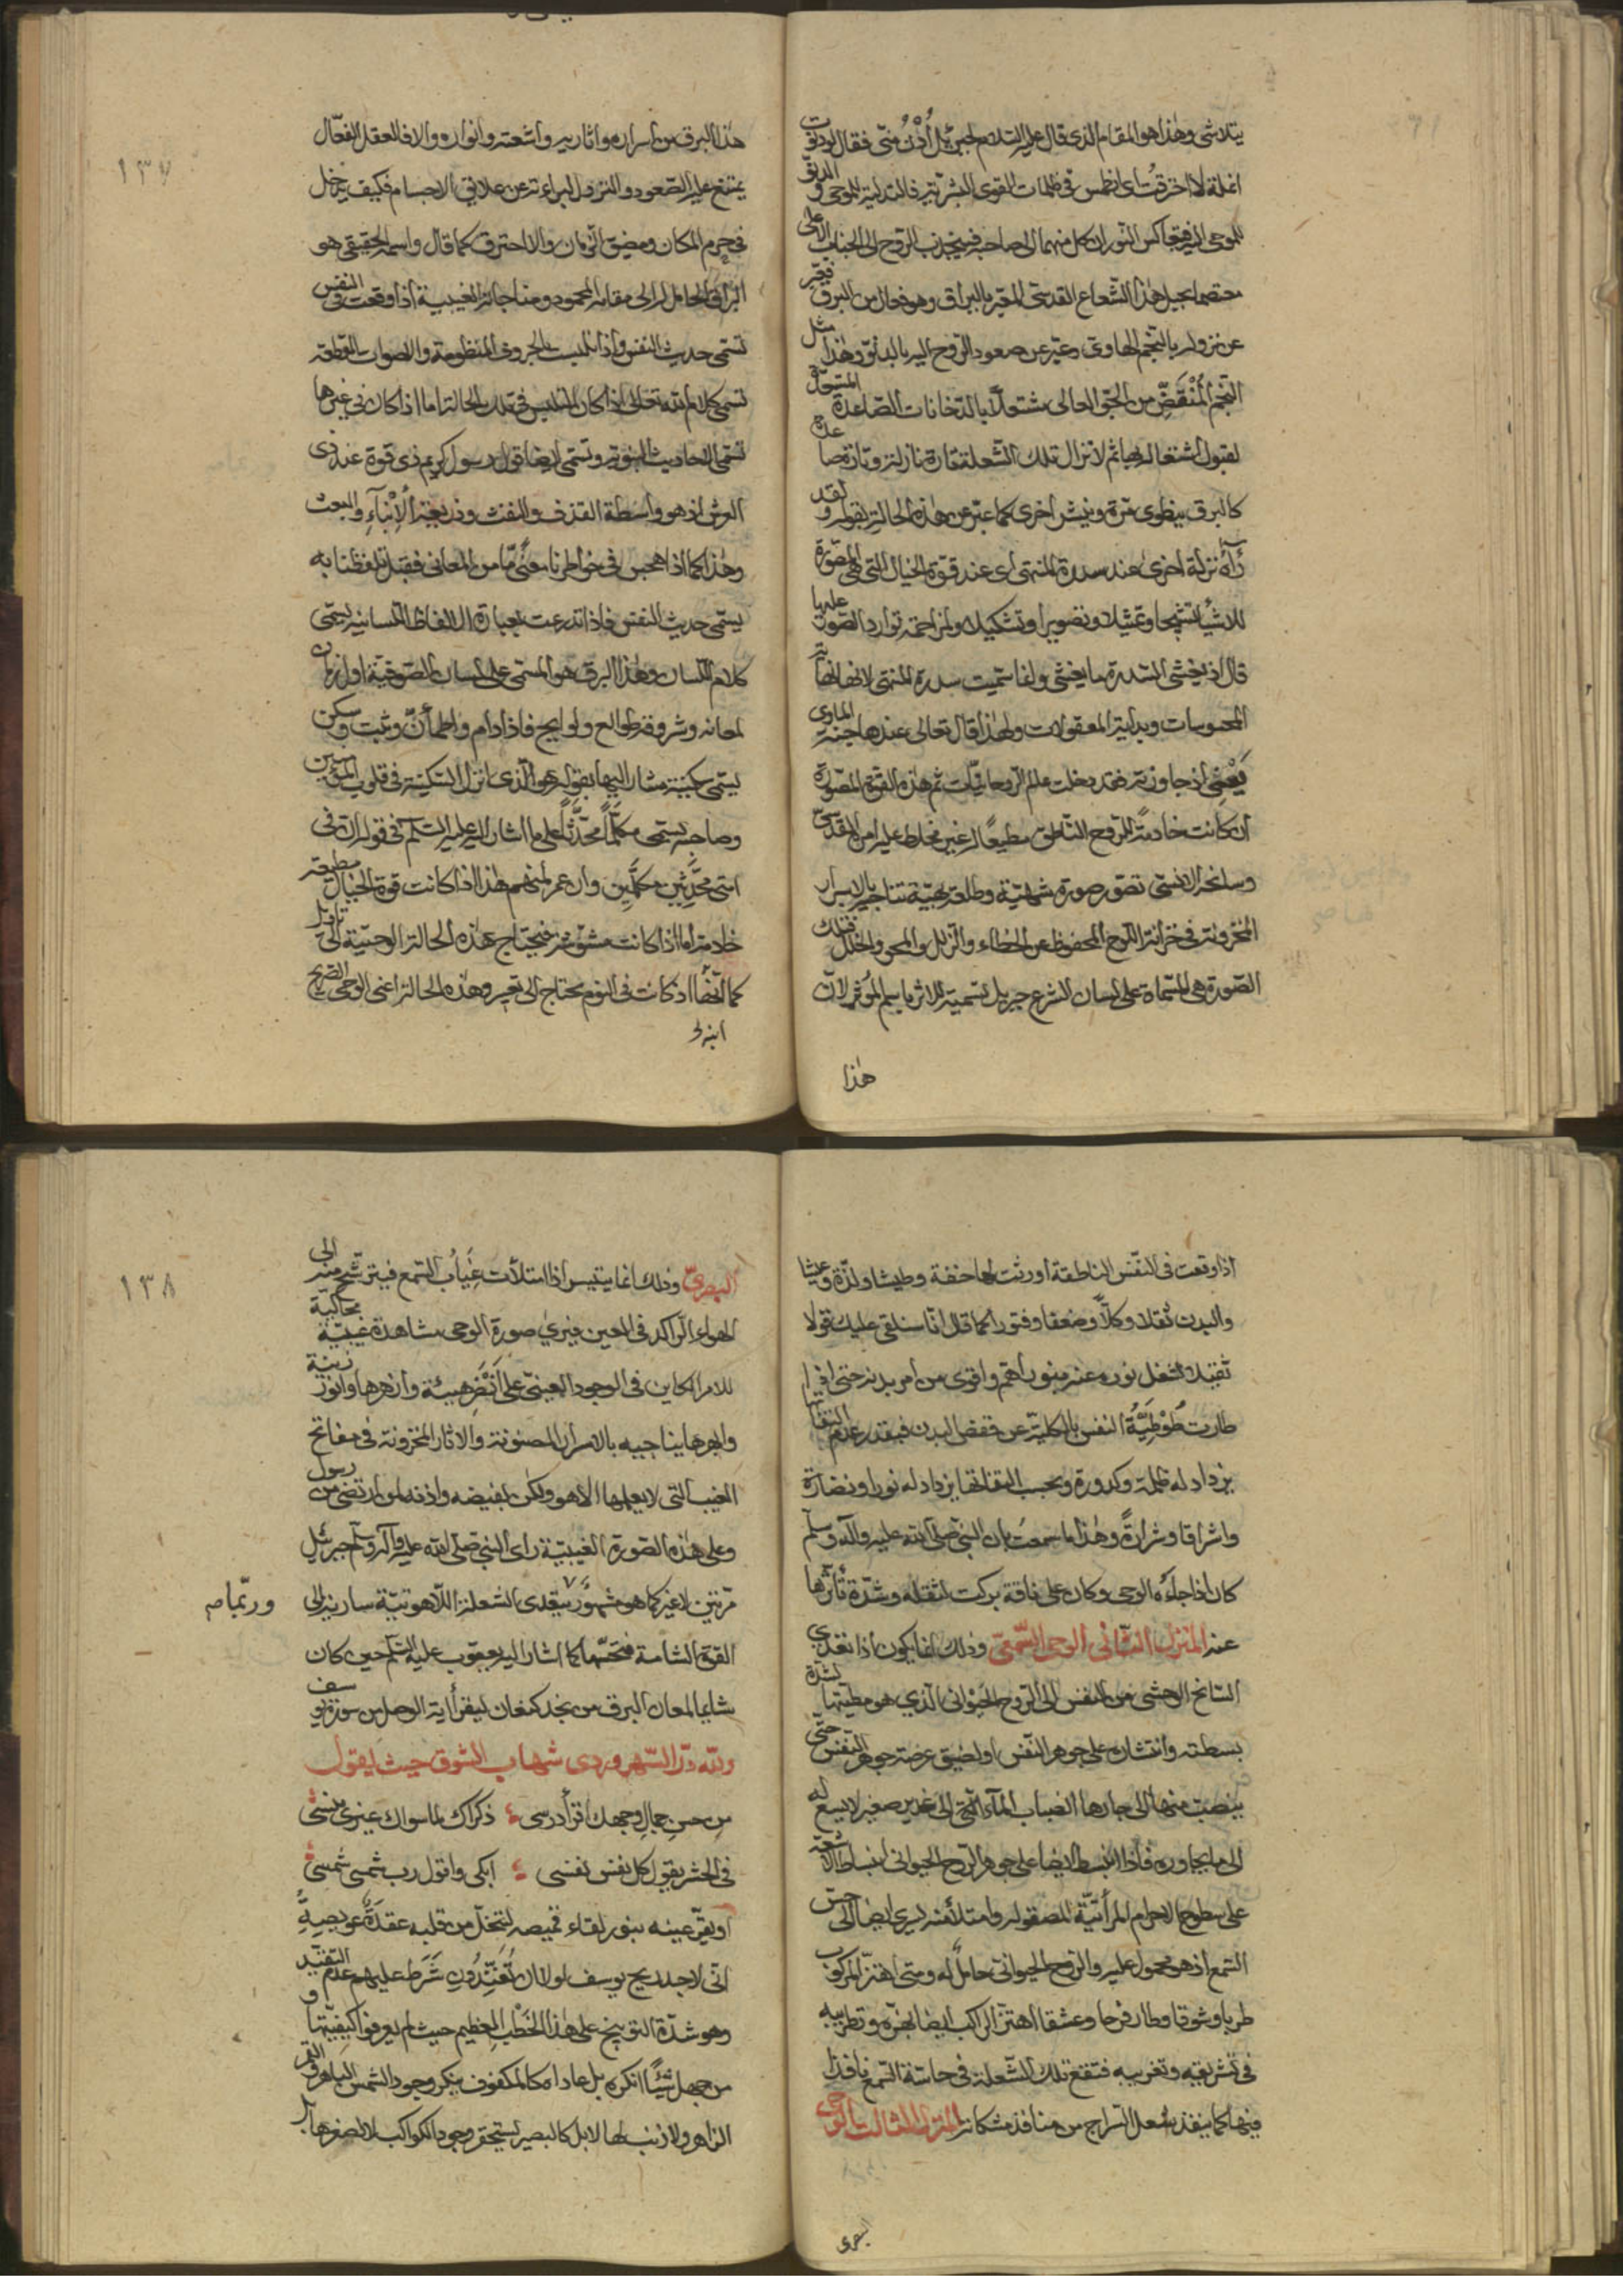 يتلاشى وهذا هو المقام الذى قال عليه السلام لجبرئيل أُدْنُ منّى فقال لو دنوت
انملة لاحترقت اى انطمس فى ظلمات القوى البشرية فالتدلية للموحى والدنوّ
للموحى اليه فيتعاكس النوران كل منهما الى صاحبه فينجذب الروح الى الجناب الاعلى
معتصما بحبل هذا الشعاع القدسىّ المعبّر بالبراق وهو فعال من البرق فعبّر
عن نزوله بالنجم الهاوى وعبّر عن صعود الروح اليه بالدنوّ وهذا مثل
النجم المُنْقَضّ من الجوّ العالى مشتعلاً بالدخانات الصّاعدة المستعدّة
لقبول اشتعاله بها ثم لا تزال تلك الشعلة تارة نازلة وتارة صاعدة
كالبرق ينطوى مرّة وينشر اخرى كما عبّر عن هذه الحالة بقوله ولقد
رآه نزلة اخرى عند سدرة المنتهى اى عند قوّة الخيال التى هى المصوّرة
للاشياء تشبّحا وتمثيلا وتصويرا وتشكيلا ولمزاحمة توارد الصور عليها
قال اذ يغشى السدرة ما يغشى وانما سميت سدرة المنتهى لانها نهاية
المحسوسات وبداية المعقولات ولهذا قال تعالى عندها جنة الماوى
يعنى اذ جاوزته فقد دخلت عالم الروحانيات ثم هذه القوة المصوّرة
ان كانت خادمة للروح الناطق مطيعًا له غير مخلط عليه امره القدسىّ
وسانحه الانسىّ تصوّر صورة شهيّة وطلعة بهيّة تناجيه بالاسرار
المخزونة فى خزانة اللوح المحفوظ عن الخطاء والزلل والمحو والخلل فتلك
الصّورة هى المسماة على لسان الشرع جبريل تسمية للاثر باسم المؤثر لانّ
هذا
هذا البرق من اسراره واثاره واشعته وانواره والا فالعقل الفعّال
يمتنع عليه الصّعود والنزول لبراءته عن علائق الاجسام فكيف يدخل
فى جرم المكان ومضيق الزمان والا لاحترق كما قال واسمه الحقيقى هو
البراق الحامل له الى مقامه المحمود ومناجاته الغيبية اذا وقعت فى النفس
تسمى حديث النفس واذا تلبست بالحروف المنظومة والاصوات المقطعة
تسمى كلام الله تعالى اذا كان التلبس فى تلك الحالة اما اذا كان فى غيرها
تسمى الاحاديث النبوية وتسمى ايضا قول رسول كريم ذى قوة عند ذى
العرش اذ هو واسطة القذف والنفث وذريعة الاِنْباَءِ والبعث
وهذا كما اذا هجس فى خواطرنا معنًى مّا من المعانى فقبل تلفظنا به
يسمّى حديث النفس فاذا تدرعت بعبارة الالفاظ اللسانية يسمّى
كلام اللسان وهذا البرق هو المسمى على لسان الصوفيّة اول زمان
لمعانه وشروقه طوالع ولوايح فاذا دام واطمأنّ وثبت وسكن
يسمى سكينة مشارا اليها بقوله هو الذى انزل السكينة فى قلوب المؤمنين
وصاحبه يسمى مكلَّماً محدَّثاً على ما اشار اليه عليه السلم فى قوله ان فى
امتى محدَّثين مكلَّمين وان عمر لمنهم هذا اذا كانت قوة الخيال مطيعة
خادمة اما اذا كانت مشوشة فيحتاج هذه الحالة الوحيّية الى تاويل
كما انها اذ كانت فى النوم يحتاج الى تعبير وهذه الحالة اعنى الوحى الصريح
١٣٧
اذا وقعت فى النّفس الناطقة اورثت لها خفة وطيشا ولذّة وعيشا
والبدن ثقلا وكلاًّ وضعفا وفتورا كما قال انّا سنلقى عليك قولا
ثقيلا لشغل نوره عنه بنور اهم واقوى من امر بدنه حتى اذا
طارت طُوطِيَّةُ النفس بالكلية عن قفص البدن فبقدر عدم التفاتها
يزداد له ظلمة وكدورة وبحسب التفاتها يزداد له نورا ونضارة
واشراقا وشرارةً وهذا ما سمعتَ بان النبى صلى الله عليه وآله وسلم
كان اذا جاءَه الوحى وكان على ناقة بركت لثقله وشدّة تأثّرها
عنه المنزل الثانى الوحى السّمعىّ وذلك انما يكون اذا تعدى
السّانح الوحشى من النفس الى الروح الحيوانى الذي هو مطيتها لشدّة
بسطته وانتشاره على جوهر النّفس او لضيق عرصة جوهر النّفس حتّى
ينصبّ منها الى جارها انصباب المآء الآتى الى غدير صغير لا يسع له
الى ما يجاوره فاذا انبسط ايضا على جوهر الروح الحيوانى انبساط الاشعة
على سطوح الاجرام المرآتيّة المصقولة وامتلأ منه يسرى ايضا الى حسّ
السّمع اذ هو محمول عليه والروح الحيوانى حاملٌ له ومتى اهتزّ المركوب
طربا وشوقا وطار فرحا وعشقا اهتزّ الراكب ايضا بهزّه وتطربيه
فى تشريقه وتغريبه فتقع تلك الشّعلة فى حاسّة السّمع نافذا
فيها كما ينفذ شعل السّراج من منافذ مشكاته المنزل الثالث الوحى
البصرى
البصرىّ وذلك انما يتيسر اذا امتلأت غياب السّمع فيترشح منه الى
الهواء الراكد فى العين فيرى صورة الوحى مشاهدة غيبيّة محاكية
للامر الكاين فى الوجود العينىّ على انضر هيئة وازهرها وانور زينة
وابهرها يناجيه بالاسرار المصونة والاثار المخزونة فى مفاتح
الغيب التى لا يعلمها الا هو ولكن بفيضه واذنه لمن ارتضى من رسول
وعلى هذه الصّورة الغيبيّة راى النبى صلى الله عليه وآله وسلم جبرئيل
مرّتين لا غير كما هو مشهور بتعدى الشعلة اللاهوتيّة سارية الى
وربّما صح
القوة الشامة فتحسّها كما اشار اليه يعقوب عليه السّلم حين كان
شايما لمعان البرق من نجد كنعان ليقرأ اية الوصل من سورة يوسف
ولله درّ السّهروردى شهاب الشوق حيث يقول
من حسنِ جمالِ وجهك اقرأ درسى ذكراك لما سواك عندى منسى
فى الحشر يقول كل نفس نفسى ابكى واقول ربّ شمسى شمسى
او يقرّ عينه بنور لقاء قميصه لتنحلّ من قلبه عقدةٌ عويصةٌ
انّى لاجد ريح يوسف لولا ان تُفَنِّدُونِ شَرَط عليهم عدم التفنيد
وهو شدّة التوبيخ على هذا الخَطْب العظيم حيث لم يعرفوا كيفيّتها و
من جهل شيئًا انكره بل عاداه كالمكفوف ينكر وجود الشمس الباهر والقمر
الزاهر ولا ذنب لها لا بل كالبصير يستحقر وجود الكواكب لا لصغرها بل
١٣٨